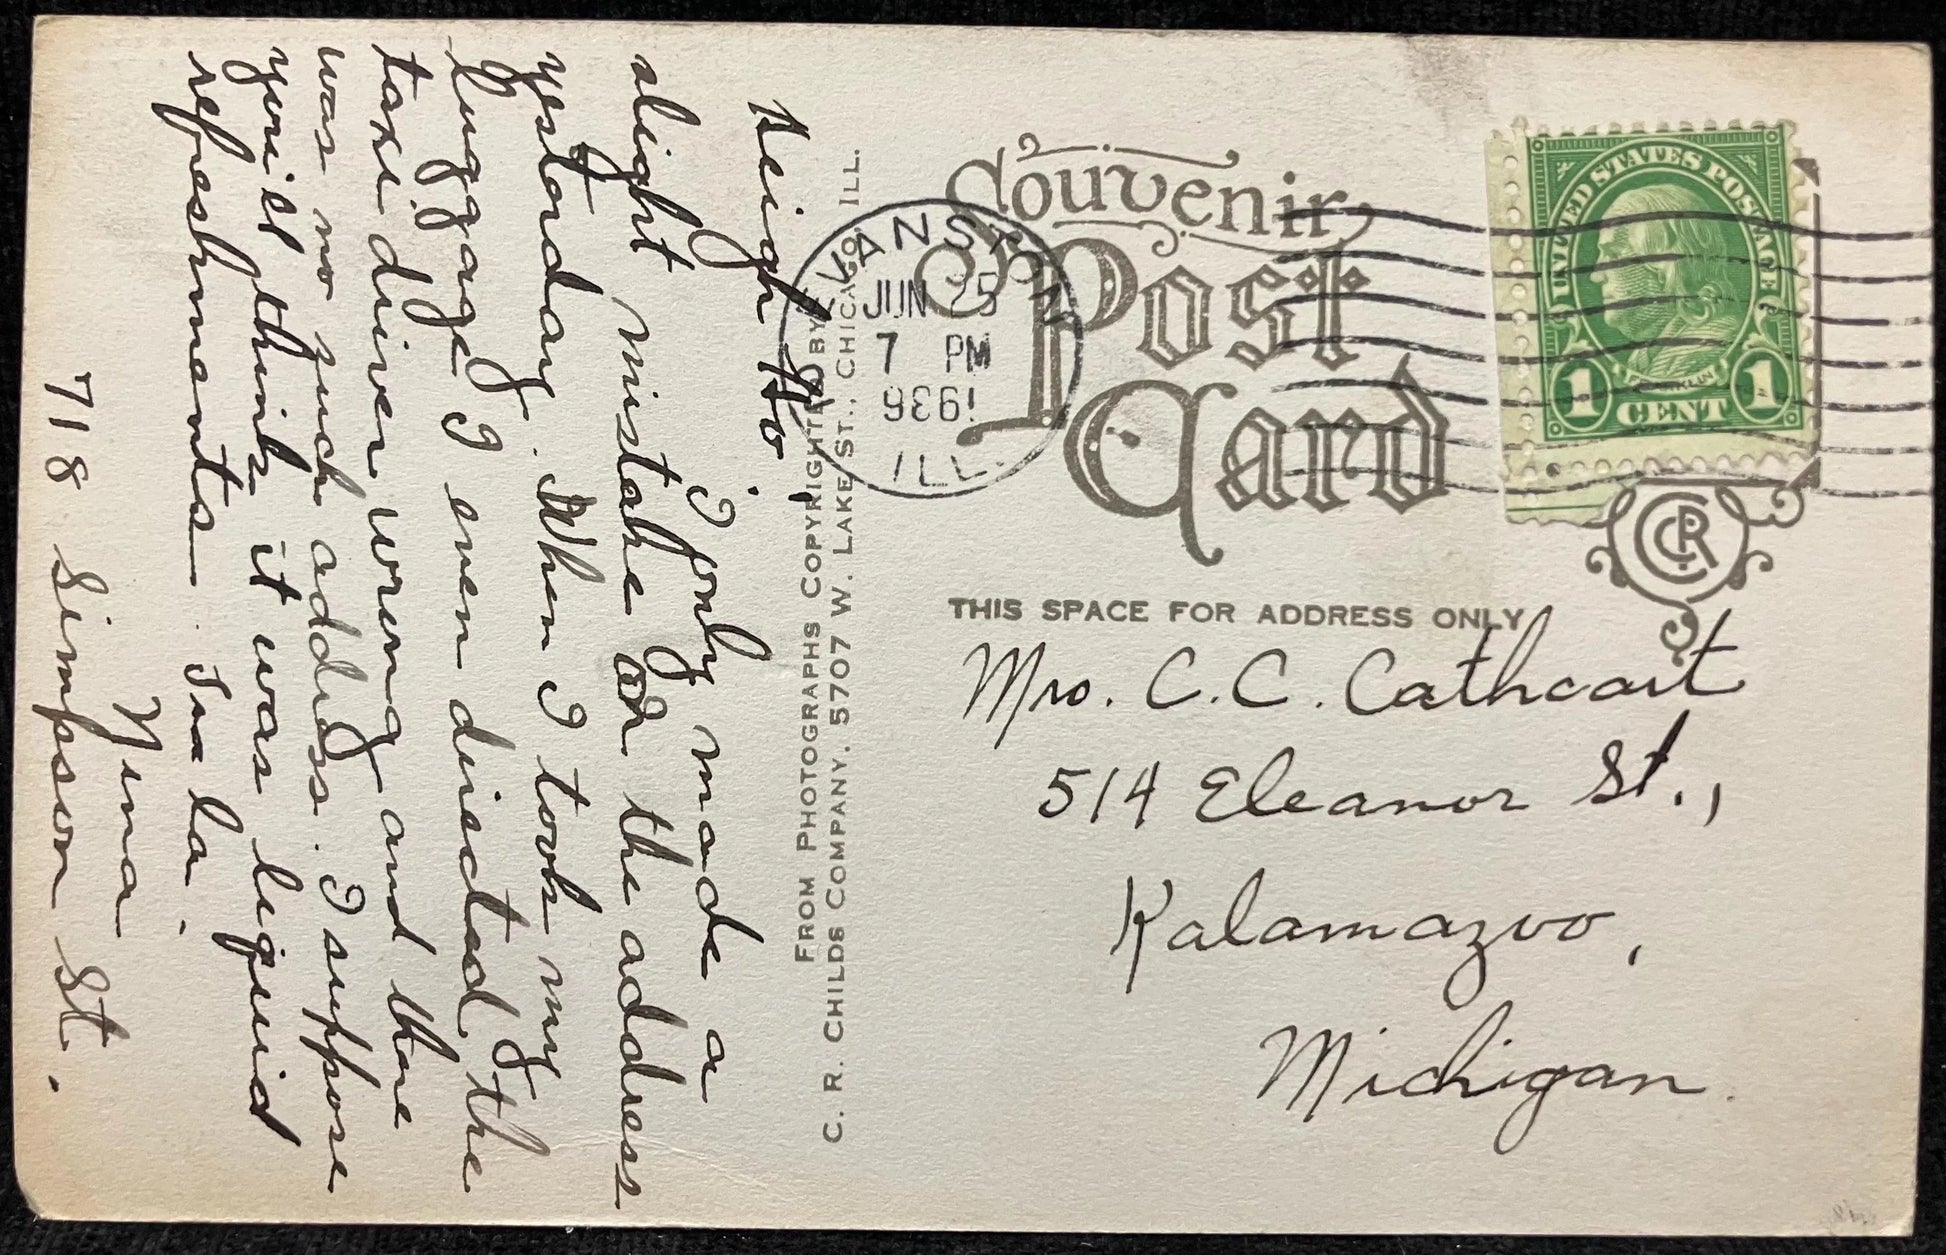 Heigh Ho!
I only made a
slight mistake on the address
yesterday. When I took my
luggage I even directed the
taxi driver wrong and there
was no such address. I suppose
you'll think it was liquid
refreshments. Tra la.
Nina
718 Simpson St.
FROM PHOTOGRAPHS COPYRIGHTED BY
C. R. CHILDS COMPANY, 5707 W. LAKE ST., CHICAGO, ILL.
Souvenir
Post
Card
EVANSTON
JUN 25
7 PM
1936
ILL.
UNITED STATES POSTAGE
FRANKLIN
1 CENT 1
CRC
THIS SPACE FOR ADDRESS ONLY
Mrs. C. C. Cathcart
514 Eleanor St.,
Kalamazoo,
Michigan.